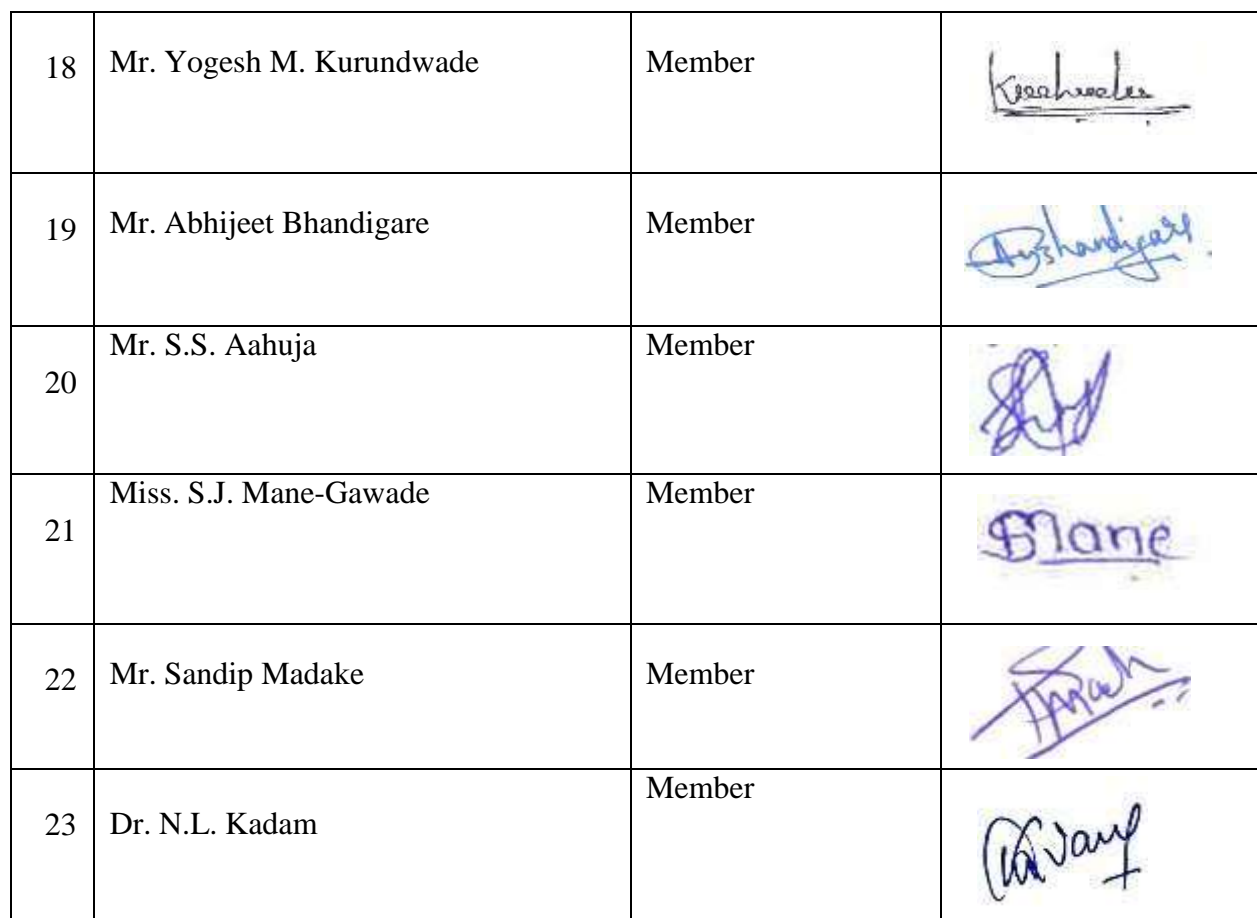 18 Mr. Yogesh M. Kurundwade Member
19 Mr. Abhijeet Bhandigare Member Bhandigare
20 Mr. S.S. Aahuja Member
21 Miss. S.J. Mane-Gawade Member SMane
22 Mr. Sandip Madake Member
23 Dr. N.L. Kadam Member